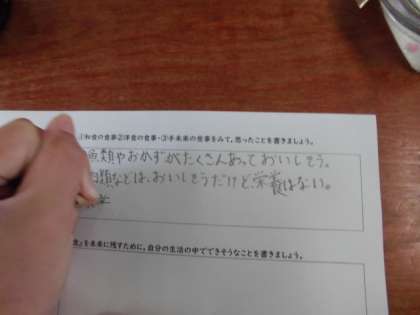 ①和食の食事②洋食の食事・③手未来の食事をみて。思ったことを書きましょう。
魚類やおかずがたくさんあっておいしそう。
肉類などは、おいしそうだけど栄養はない。
』を未来に残すために、自分の生活の中でできそうなことを書きましょう。